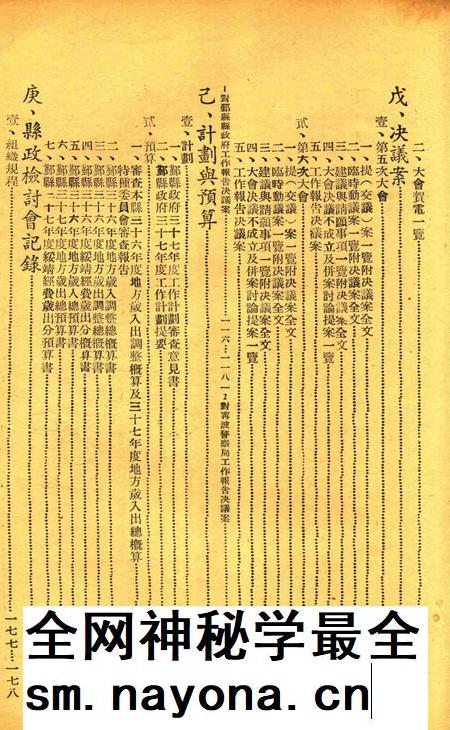 二 大會賀電一覽
戊、决議案
壹、第五次大會
一、提（交議）案一覽附决議案全文
二、臨時動議案一覽附决議案全文
三、建議與請願事項一覽附决議案全文
四、大會决議不成立及併案討論提案一覽
五、工作報告决議案
貳、第六次大會
一、提（交議）案一覽附决議案全文
二、臨時動議案一覽附决議案全文
三、建議與請願事項一覽附决議案全文
四、大會决議不成立及併案討論提案一覽
五、工作報告决議案
1對鄞縣縣政府工作報告决議案……一一六…一一八 2對寗波警察局工作報告决議案
己、計劃與預算
壹、計劃
一、鄞縣縣政府三十七年度工作計劃審查意見書
二、鄞縣縣政府三十七年度工作計劃提要
貳、預算
一、審查本縣三十六年度地方歲入出調整概算及三十七年度地方歲入出總概算
特種委員會審查報告
二、鄞縣三十六年度地方歲入調整總概算書
三、鄞縣三十六年度地方歲出調整總概算書
四、鄞縣三十六年度綏靖經費歲出分概算書
五、鄞縣三十七年度地方歲入總預算書
六、鄞縣三十七年度地方歲出總預算書
七、鄞縣三十七年度綏靖經費歲出分預算書
庚、縣政檢討會記錄
壹、組織規程……一七七…一七八
全网神秘学最全
sm.nayona.cn